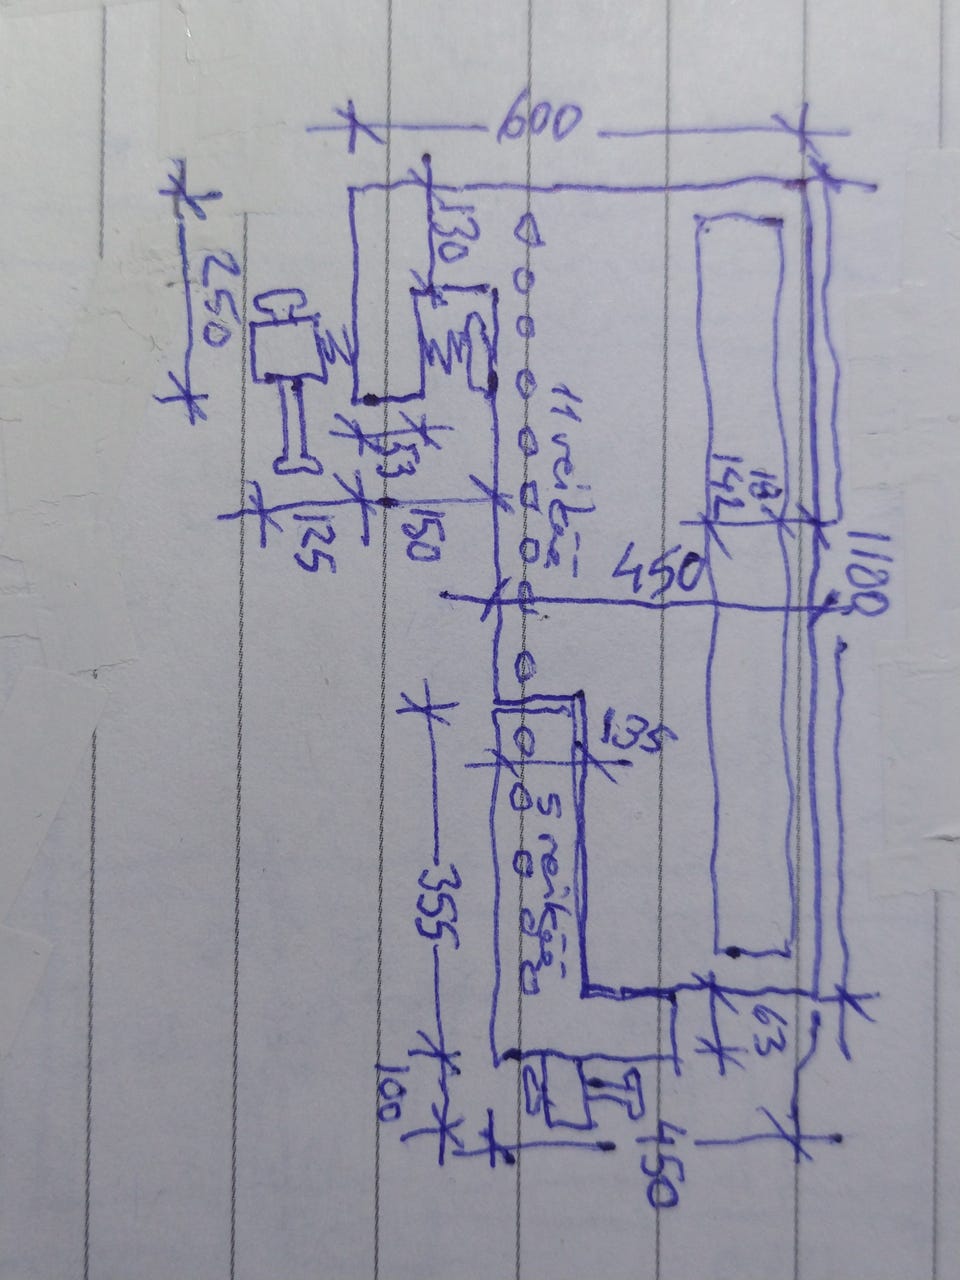 600
130
250
11 reikää
18
142
1100
53
150
125
450
135
5 reikää
355
63
100
450